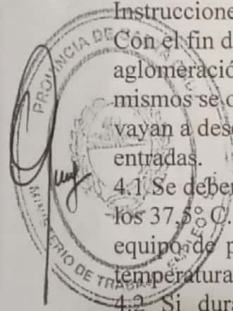 Instruccione
Con el fin d
aglomeració
mismos se
vayan a des
entradas.
4.1 Se deber
los 37,5° C.
equipo de p
temperatura
4.2 Si dura
PROVINCIA DE
MINISTERIO DE TRABA